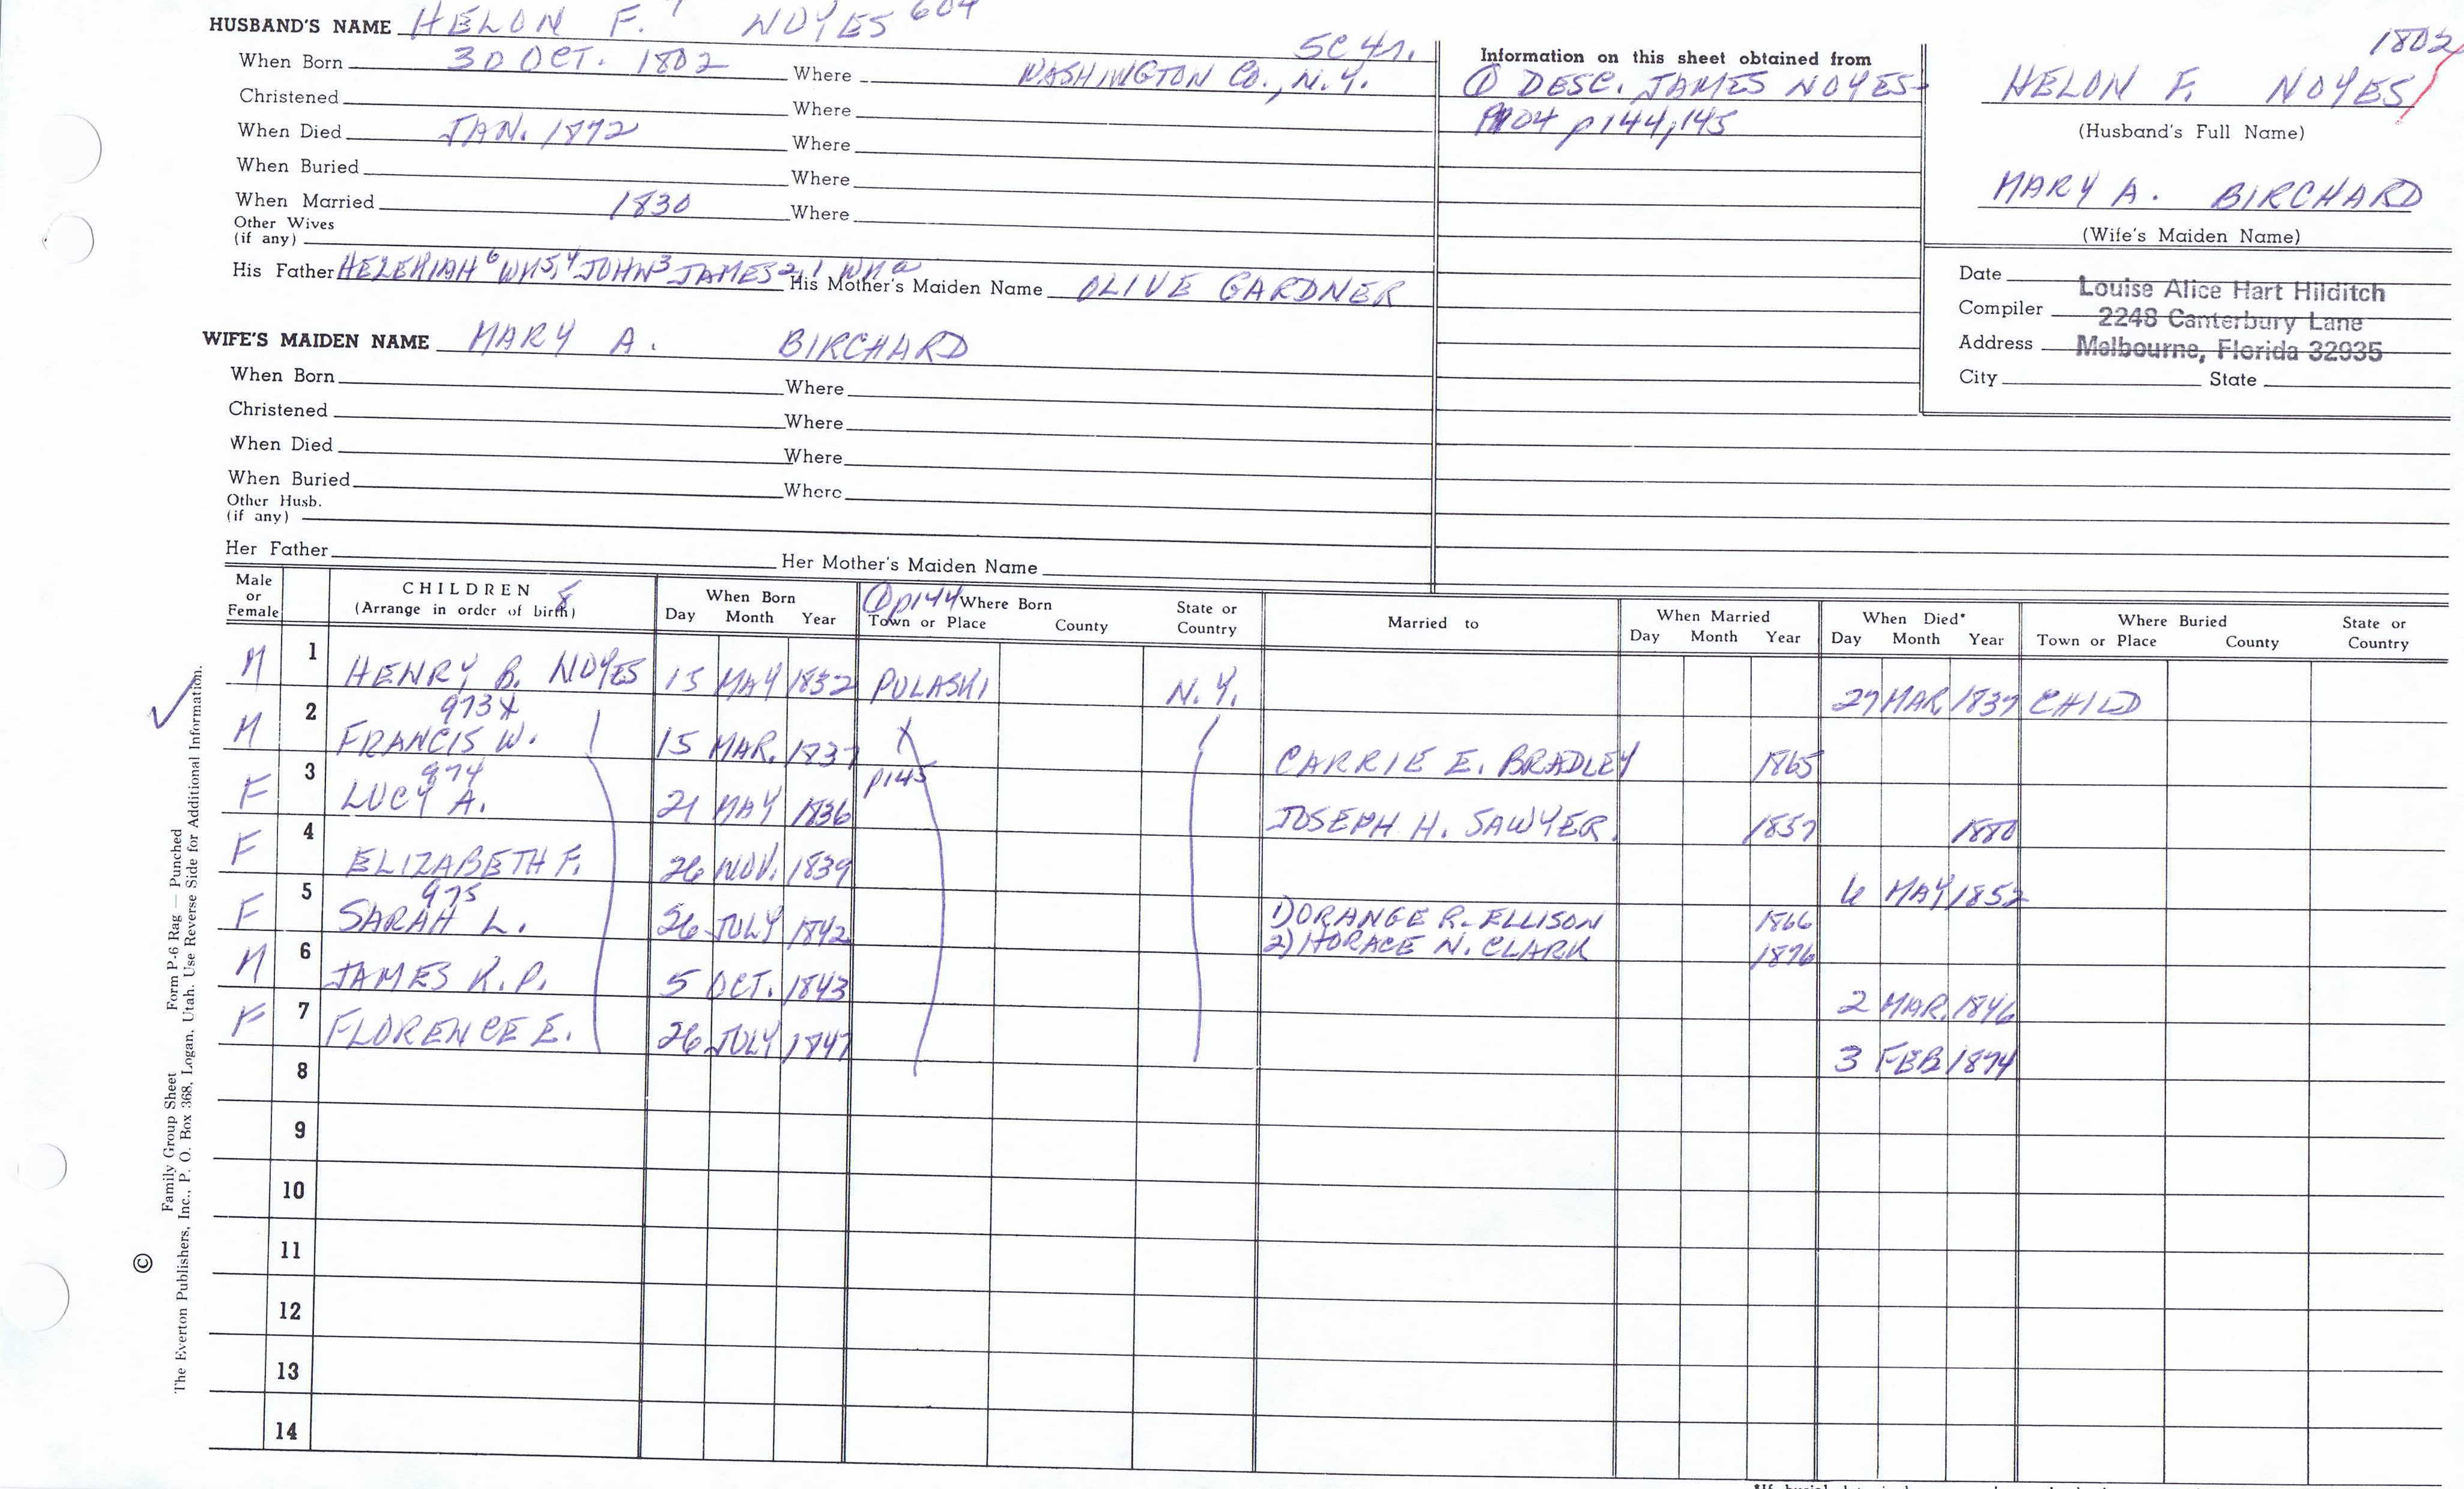 HUSBAND'S NAME HELON F. 7 NOYES 604
When Born 30 OCT. 1802 Where WASHINGTON CO., N.Y.
Christened Where
When Died JAN. 1872 Where
When Buried Where
When Married 1830 Where
Other Wives
(if any)
His Father HEZEKIAH 6 WM 5,4 JOHN 3 JAMES 2,1 WM a His Mother's Maiden Name OLIVE GARDNER
WIFE'S MAIDEN NAME MARY A. BIRCHARD
When Born Where
Christened Where
When Died Where
When Buried Where
Other Husb.
(if any)
Her Father Her Mother's Maiden Name
Information on this sheet obtained from
① DESC. JAMES NOYES-
1904 p144,145
1802
HELON F. NOYES
(Husband's Full Name)
MARY A. BIRCHARD
(Wife's Maiden Name)
Date
Louise Alice Hart Hilditch
Compiler 2248 Canterbury Lane
Address Melbourne, Florida 32935
City State
Male or Female CHILDREN 8 (Arrange in order of birth) When Born Day Month Year ① p144 Where Born Town or Place County State or Country Married to When Married Day Month Year When Died* Day Month Year Where Buried Town or Place County State or Country
M 1 HENRY B. NOYES 15 MAY 1832 PULASKI N.Y. 27 MAR. 1837 CHILD
973 X
M 2 FRANCIS W. 15 MAR. 1837 CARRIE E. BRADLEY 1865
974 p145
F 3 LUCY A. 21 MAY 1836 JOSEPH H. SAWYER. 1857 1880
F 4 ELIZABETH F. 26 NOV. 1839 6 MAY 1852
975
F 5 SARAH L. 26 JULY 1842 1) ORANGE R. ELLISON 1866
2) HORACE N. CLARK 1876
M 6 JAMES K.P. 5 OCT. 1843 2 MAR. 1846
F 7 FLORENCE E. 26 JULY 1847 3 FEB 1874
8
9
10
11
12
13
14
Family Group Sheet Form P-6 Rag — Punched
© The Everton Publishers, Inc., P. O. Box 368, Logan, Utah. Use Reverse Side for Additional Information.